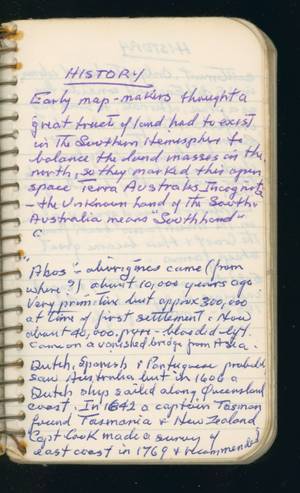 HISTORY
Early map-makers thought a
great tract of land had to exist
in the Southern Hemisphere to
balance the land masses in the
north, so they marked this open
space Terra Australis Incognita
- the Unknown land of the South
Australia means "Southland"
"Abos" - aborigines came (from
where?) about 10,000 years ago
Very primitive but approx 300,000
at time of first settlement. Now
about 40,000 pure-blooded left.
Came on a vanished bridge from Asia.
Dutch, Spanish & Portuguese probably
saw Australia but in 1606 a
Dutch ship sailed along Queensland
coast. In 1642 a captain Tasman
found Tasmania & New Zealand
Capt Cook made a survey of
east coast in 1769 & recommended